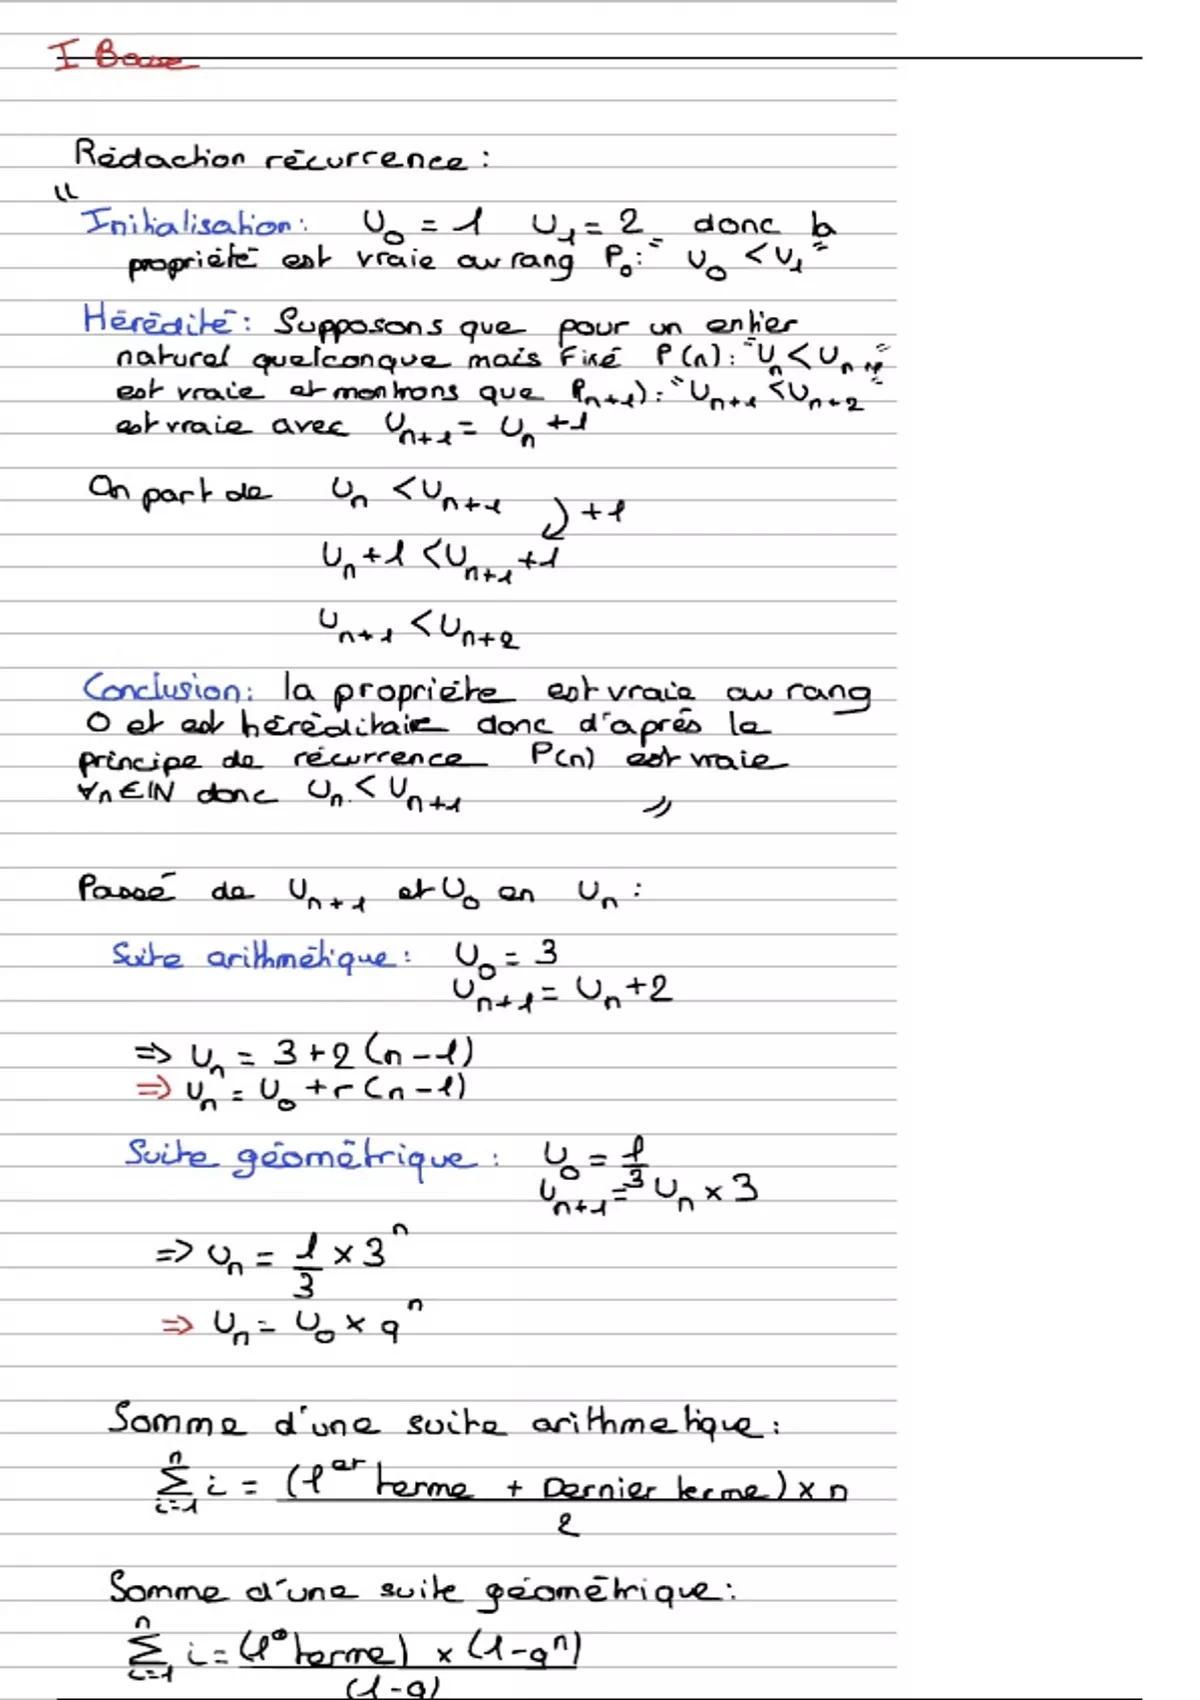 I Base
Rédaction récurrence :
"
Initialisation : U₀ = 1 U₁ = 2 donc la
propriété est vraie au rang P₀ : "U₀ < U₁"
Hérédité : Supposons que pour un entier
naturel quelconque mais fixé P(n) : "Uₙ < Uₙ₊₁"
est vraie et montrons que Pₙ₊₁) : "Uₙ₊₁ < Uₙ₊₂"
est vraie avec Uₙ₊₁ = Uₙ + 1
On part de Uₙ < Uₙ₊₁
+1
Uₙ + 1 < Uₙ₊₁ + 1
Uₙ₊₁ < Uₙ₊₂
Conclusion : la propriété est vraie au rang
0 et est héréditaire donc d'après le
principe de récurrence P(n) est vraie
∀n ∈ ℕ donc Uₙ < Uₙ₊₁ "
Passé de Uₙ₊₁ et U₀ en Uₙ :
Suite arithmétique : U₀ = 3
Uₙ₊₁ = Uₙ + 2
=> Uₙ = 3 + 2 (n - 1)
=> Uₙ = U₀ + r (n - 1)
Suite géométrique : U₀ = 1/3
Uₙ₊₁ = Uₙ × 3
=> Uₙ = 1/3 × 3ⁿ
=> Uₙ = U₀ × qⁿ
Somme d'une suite arithmetique :
n
Σ i = (1er terme + Dernier terme) × n
i=1
2
Somme d'une suite géométrique :
n
Σ i = (1° terme) × (1 - qⁿ)
i=1
(1 - q)